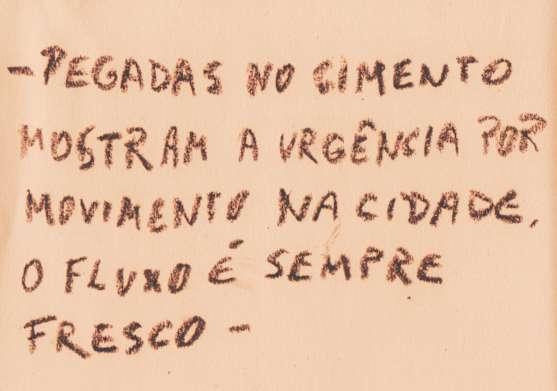 - PEGADAS NO CIMENTO
MOSTRAM A URGÊNCIA POR
MOVIMENTO NA CIDADE.
O FLUXO É SEMPRE
FRESCO -